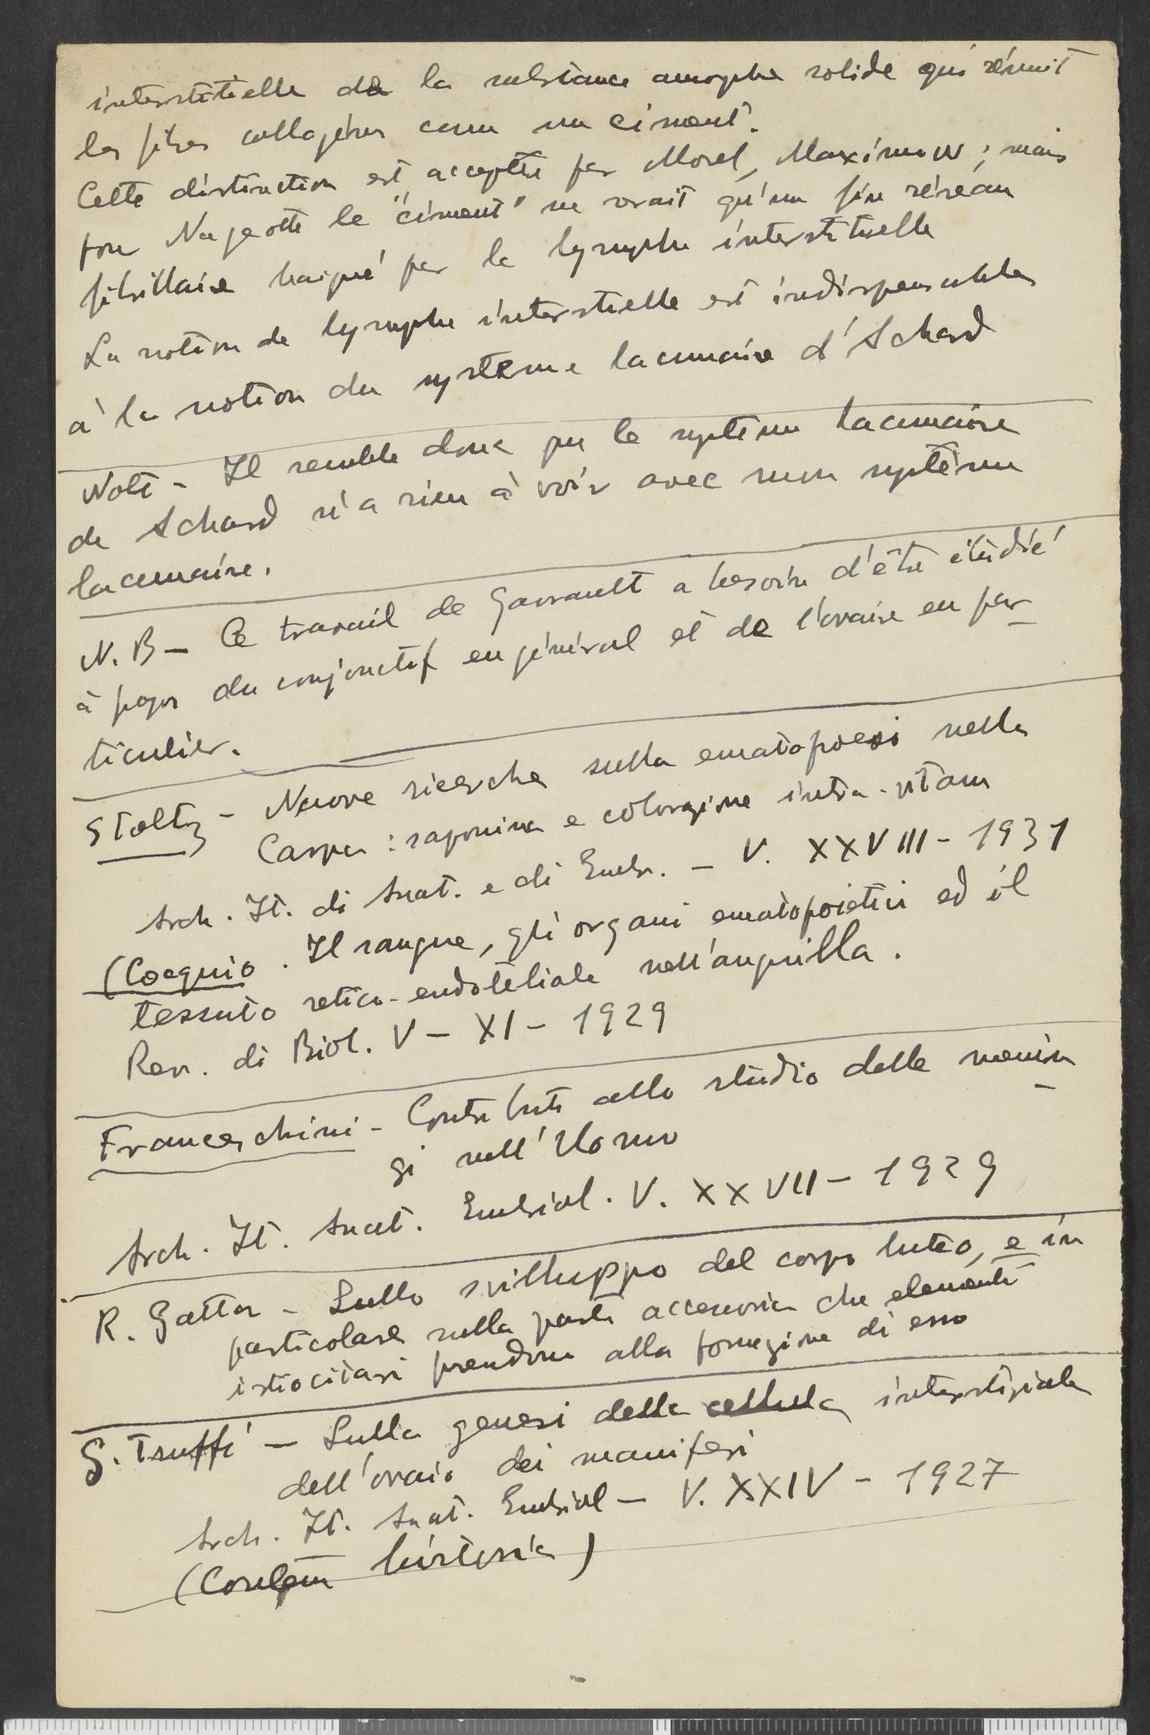 interstitielle de la substance amorphe solide qui réunit
les fibres collagènes comme un ciment.
Cette distinction est acceptée par Morel, Maximow ; mais
pour Nageotte le "ciment" ne serait qu'un fin réseau
fibrillaire baigné par la lymphe interstitielle
La notion de lymphe interstielle est indispensable
à la notion du système lacunaire d'Achard
Note - Il semble donc que le système lacunaire
de Achard n'a rien à voir avec mon système
lacunaire.
N. B - Ce travail de Gavrault a besoin d'être étudié
à propos du conjonctif en général et de l'ovaire en par-
ticulier.
Stoltz - Nuove ricerche sulla ematopoesi nella
Carpa : saponina e colorazione intra-vitam
Arch. It. di Anat. e di Embr. - V. XXVIII - 1931
(Cocquio. Il sangue, gli organi ematopoietici ed il
tessuto retico-endoteliale nell'anguilla.
Rev. di Biol. V - XI - 1929
Franceschini - Contributi allo studio delle menin-
gi nell'Uomo
Arch. It. Anat. Embriol. V. XXVII - 1929
R. Gattor - Sullo sviluppo del corpo luteo, e in
particolare sulla parte accessoria che elementi
istiocitari prendono alla formazione di esso
G. Truffi - Sulla genesi della cellula interstiziale
dell'ovaio dei mamiferi
Arch. It. Anat. Embriol - V. XXIV - 1927
(Contém história)